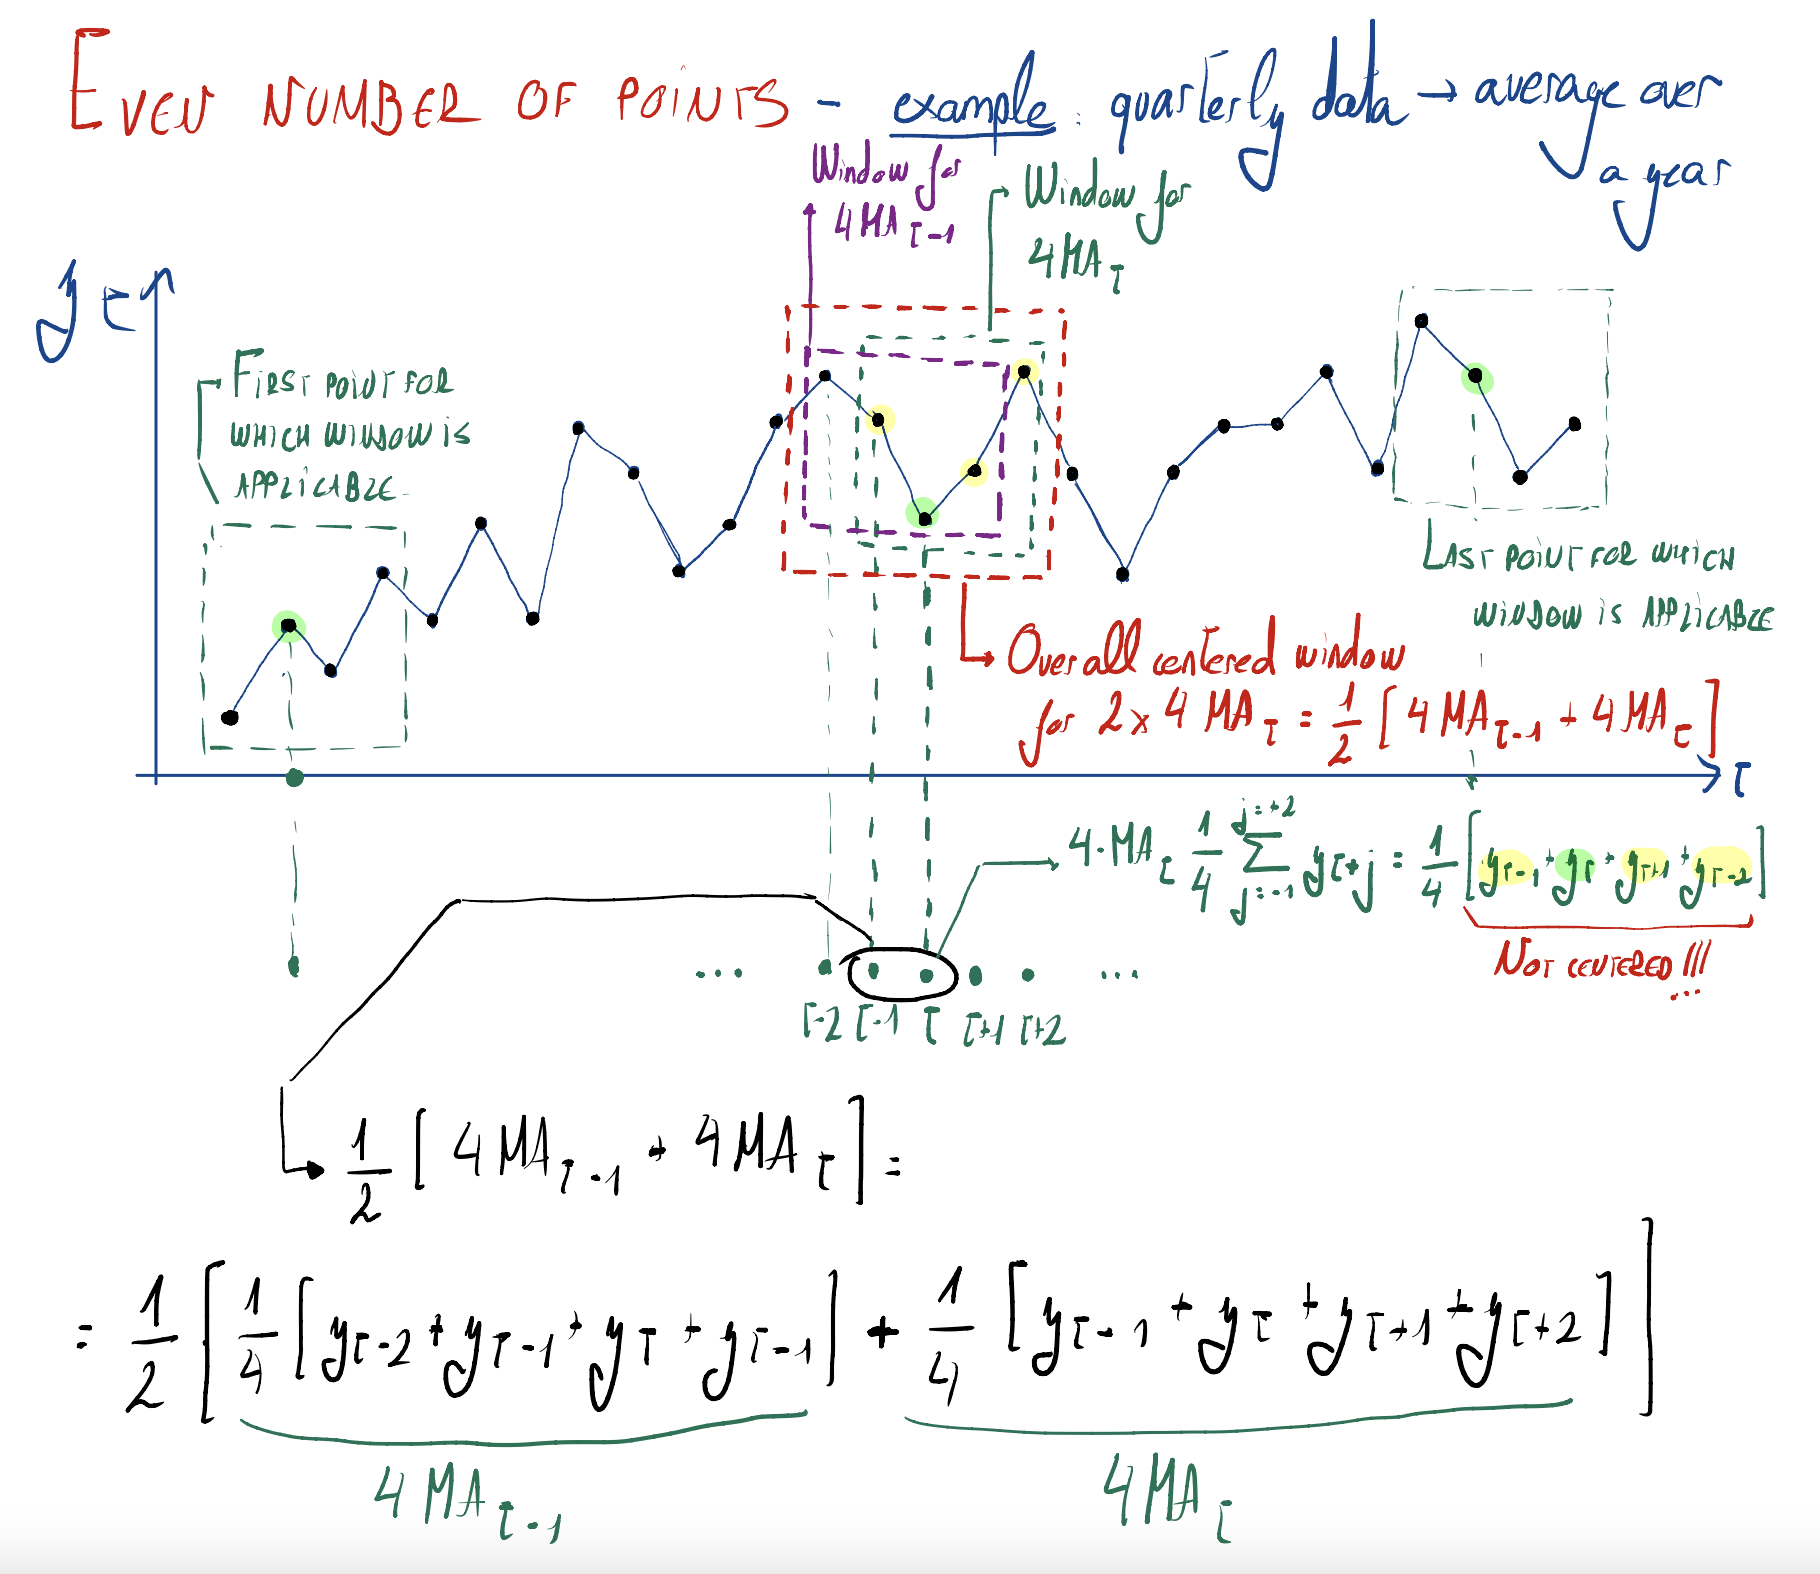 EVEN NUMBER OF POINTS - example: quarterly data → average over
a year
Window for
4MA t-1
Window for
4MA t
y t
FIRST POINT FOR
WHICH WINDOW IS
APPLICABLE
LAST POINT FOR WHICH
WINDOW IS APPLICABLE
Overall centered window
for 2x4 MA t = 1/2 [4MA t-1 + 4MA t]
t
4-MA t 1/4 Σ j=-1 j=+2 y t+j = 1/4 [y t-1 + y t + y t+1 + y t-2]
NOT CENTERED!!!
...
... ...
t-2 t-1 t t+1 t+2
1/2 [4MA t-1 + 4MA t] =
= 1/2 [1/4 [y t-2 + y t-1 + y t + y t-1] + 1/4 [y t-1 + y t + y t+1 + y t+2]]
4MA t-1
4MA t